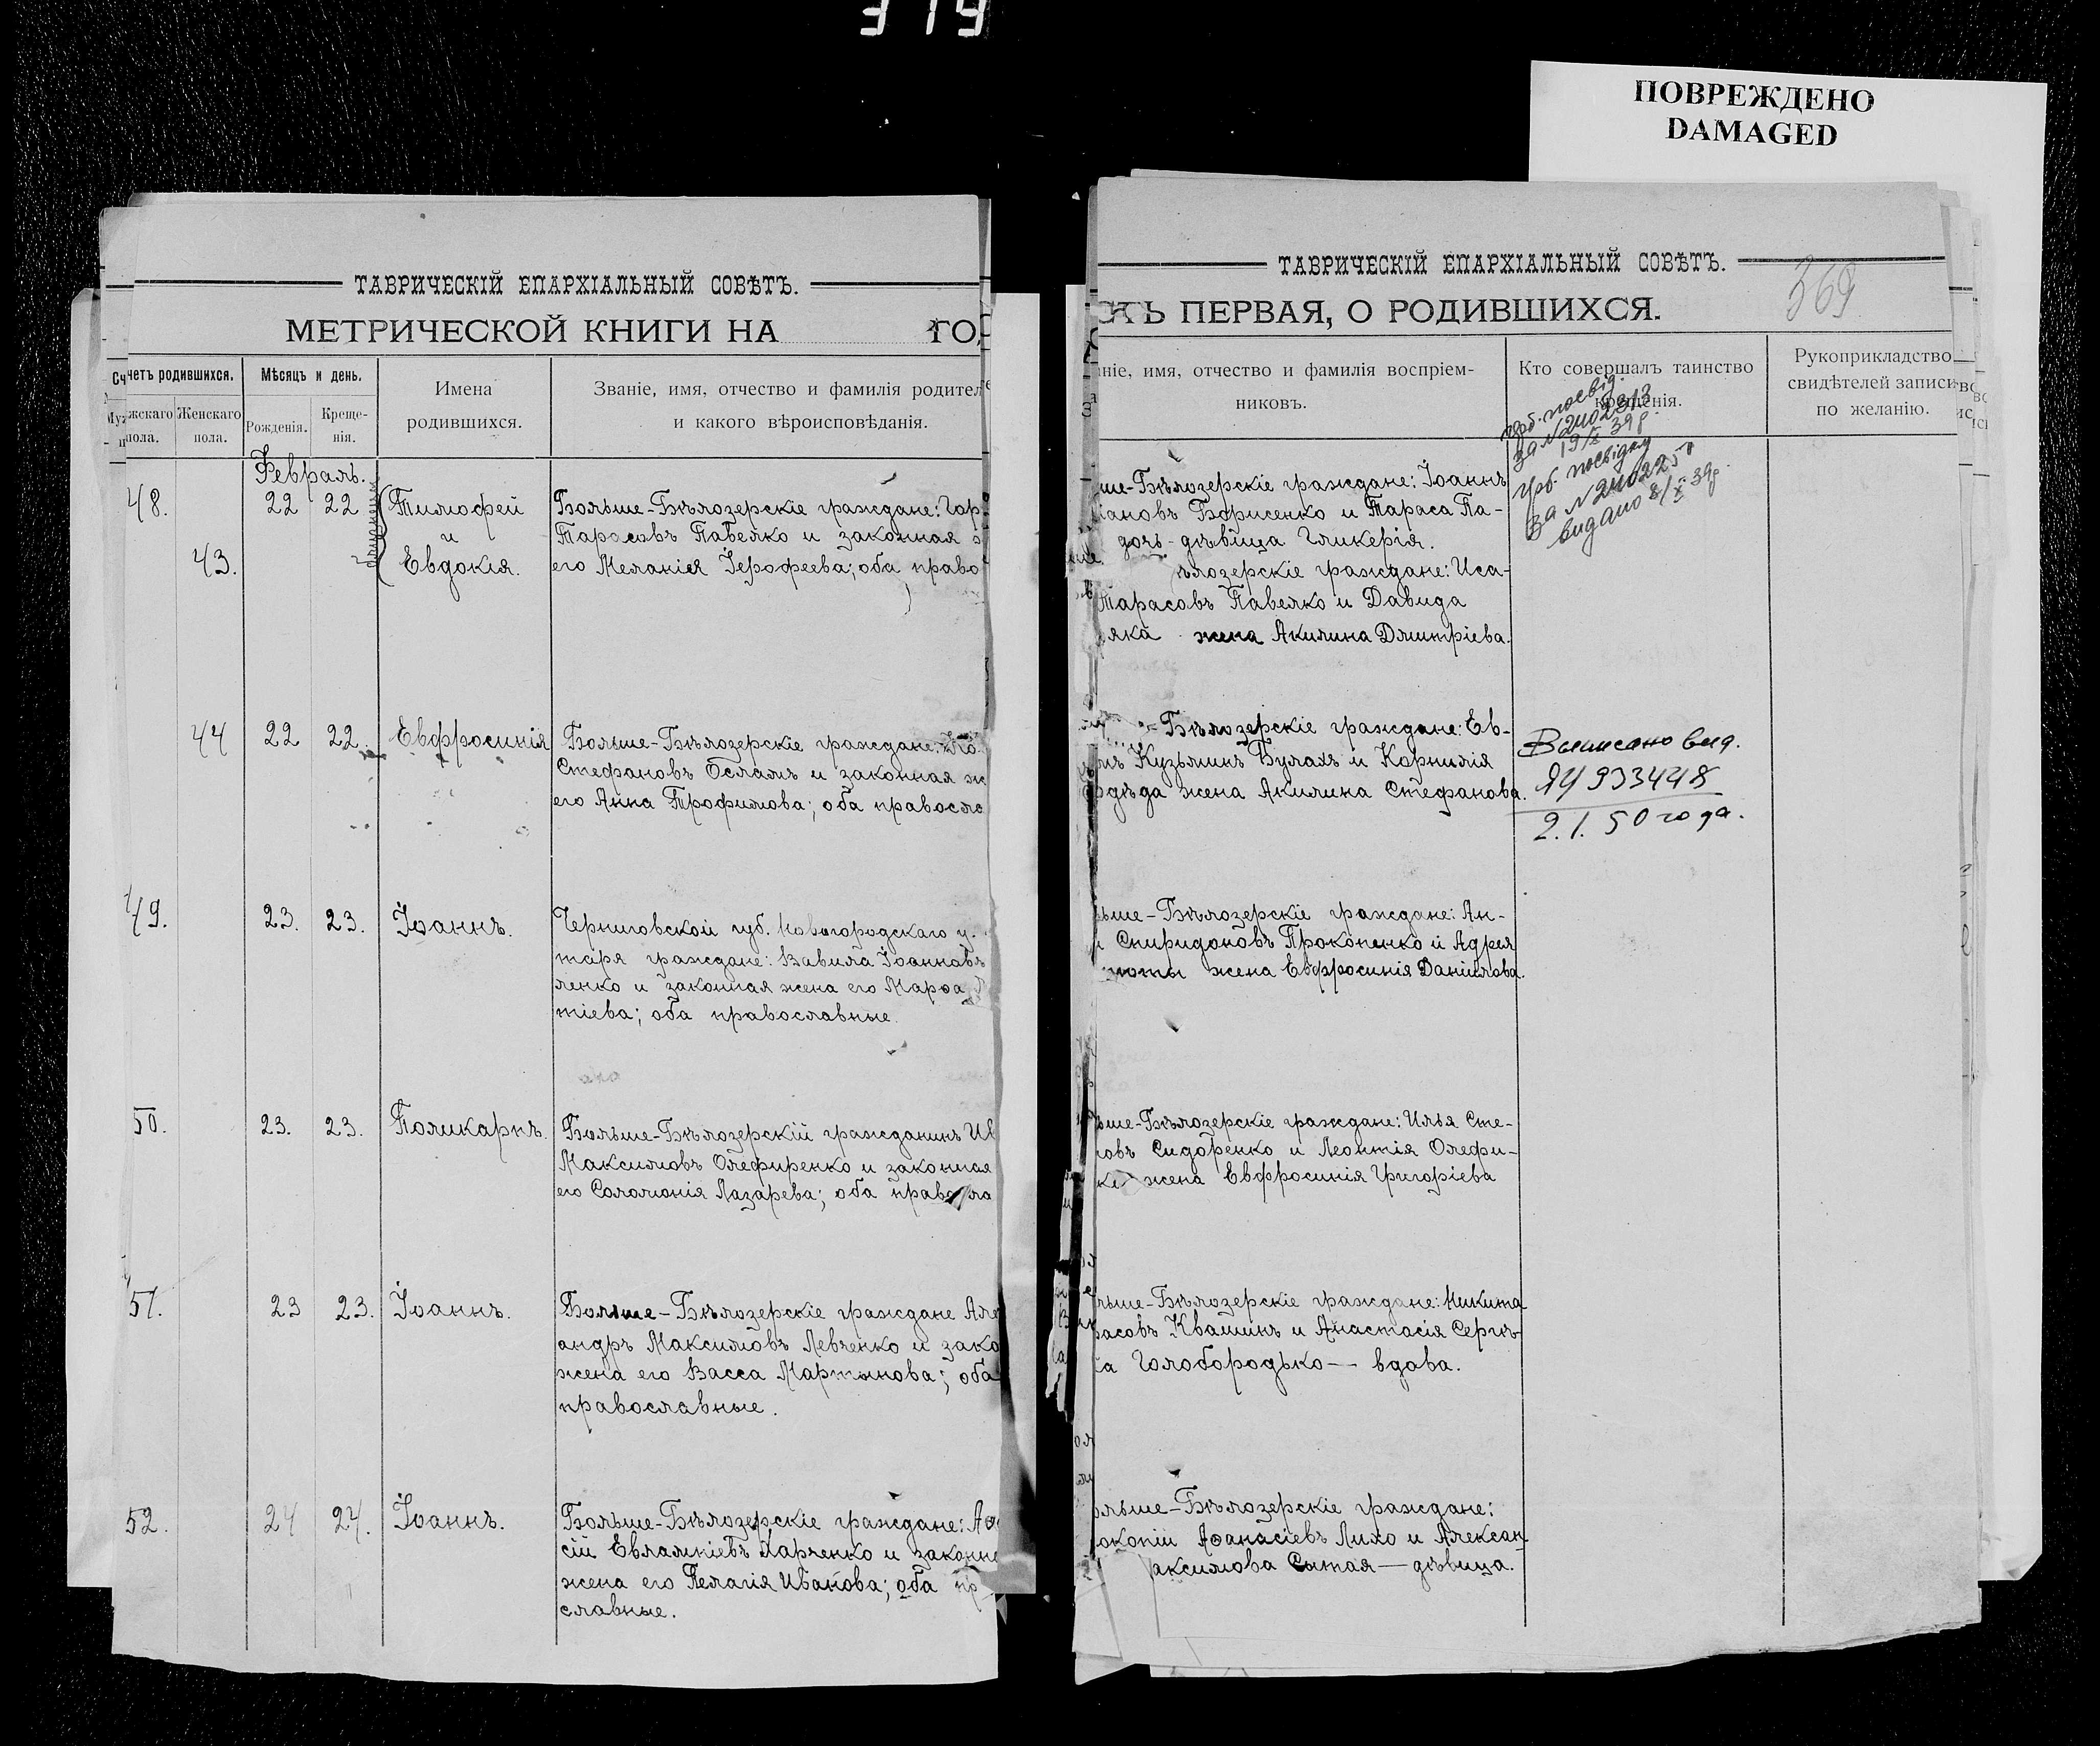 319
ПОВРЕЖДЕНО
DAMAGED
ТАВРИЧЕСКІЙ ЕПАРХІАЛЬНЫЙ СОВѢТЪ.
МЕТРИЧЕСКОЙ КНИГИ НА ГО
Счетъ родившихся.
Мѣсяцъ и день.
Имена
родившихся.
Званіе, имя, отчество и фамилія родител
и какого вѣроисповѣданія.
Женскаго
пола.
Рожденія.
Креще-
нія.
Февраль.
48.
43.
22 22
Тимофей
и
Евдокія.
Больше-Бѣлозерскіе граждане: Гор
Тарасовъ Павелко и законная
его Меланія Іерофеева; оба право
44 22 22 Евфросинія
Больше-Бѣлозерскіе граждане:
Стефановъ Осламъ и законная ж
его Анна Трофимова; оба правосла
49. 23. 23. Іоаннъ.
Черниговской губ. Новогородскаго у.
граждане: Вавила Іоанновъ
ленко и законная жена его Марѳа
тіева; оба православные.
50. 23. 23. Поликарпъ.
Больше-Бѣлозерскій гражданинъ Ив
Максимовъ Олефиренко и законная
его Соломонія Лазарева; оба правосла
51. 23 23. Іоаннъ.
Больше-Бѣлозерскіе граждане Але
андръ Максимовъ Левченко и зако
жена его Васса Мартынова; оба
православные.
52. 24 24. Іоаннъ.
Больше-Бѣлозерскіе граждане: Аѳ
сій Евлампіевъ Харченко и законн
жена его Пелагія Иванова; оба пр
славные.
ТАВРИЧЕСКІЙ ЕПАРХІАЛЬНЫЙ СОВѢТЪ.
369
СТЬ ПЕРВАЯ, О РОДИВШИХСЯ.
ніе, имя, отчество и фамилія воспріем-
никовъ.
Кто совершалъ таинство
крещенія.
Рукоприкладство
свидѣтелей записи
по желанію.
ше-Бѣлозерскіе граждане: Іоаннъ
іановъ Борисенко и Тараса Па-
дочь-дѣвица Гликерія.
ѣлозерскіе граждане: Иса-
Тарасовъ Павелко и Давида
яка жена Акилина Дмитріева.
19/X 39 р
видано 8/X 39р
-Бѣлозерскіе граждане: Ев-
Кузьминъ Булахъ и Корнилія
дѣда жена Акилина Стефанова.
Выписано вид.
ЯЧ 933448
2.1.50 года.
ьше-Бѣлозерскіе граждане: Ан-
Спиридоновъ Прокопенко и Адрея
жена Евфросинія Даніилова.
ьше-Бѣлозерскіе граждане: Илья Сте-
новъ Сидоренко и Леонтія Олефи-
жена Евфросинія Григоріева
льше-Бѣлозерскіе граждане: Никита
расовъ Квашинъ и Анастасія Сергѣ-
Голобородько — вдова.
ольше-Бѣлозерскіе граждане:
окопій Аѳанасіевъ Лихо и Алексан
аксимова Сытая — дѣвица.